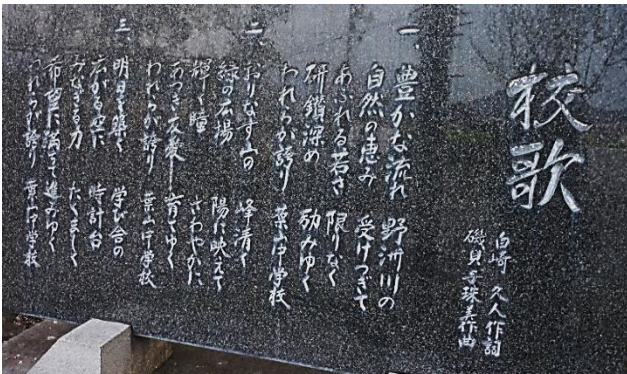 校歌
白崎 久人作詞
磯貝 寿珠美作曲
一、豊かな流れ 野洲川の
自然の恵み 受けつぎて
あふれる若さ 限りなく
研鑽深め 励みゆく
われらが誇り 葉山中学校
二、おりなす山の 峰清く
緑の広場 陽に映えて
輝く瞳 さわやかに
あつき友愛 育てゆく
われらが誇り 葉山中学校
三、明日を築く 学び舎の
広がる空に 時計台
みなぎる力 たくましく
希望に満ちて 進みゆく
われらが誇り 葉山中学校